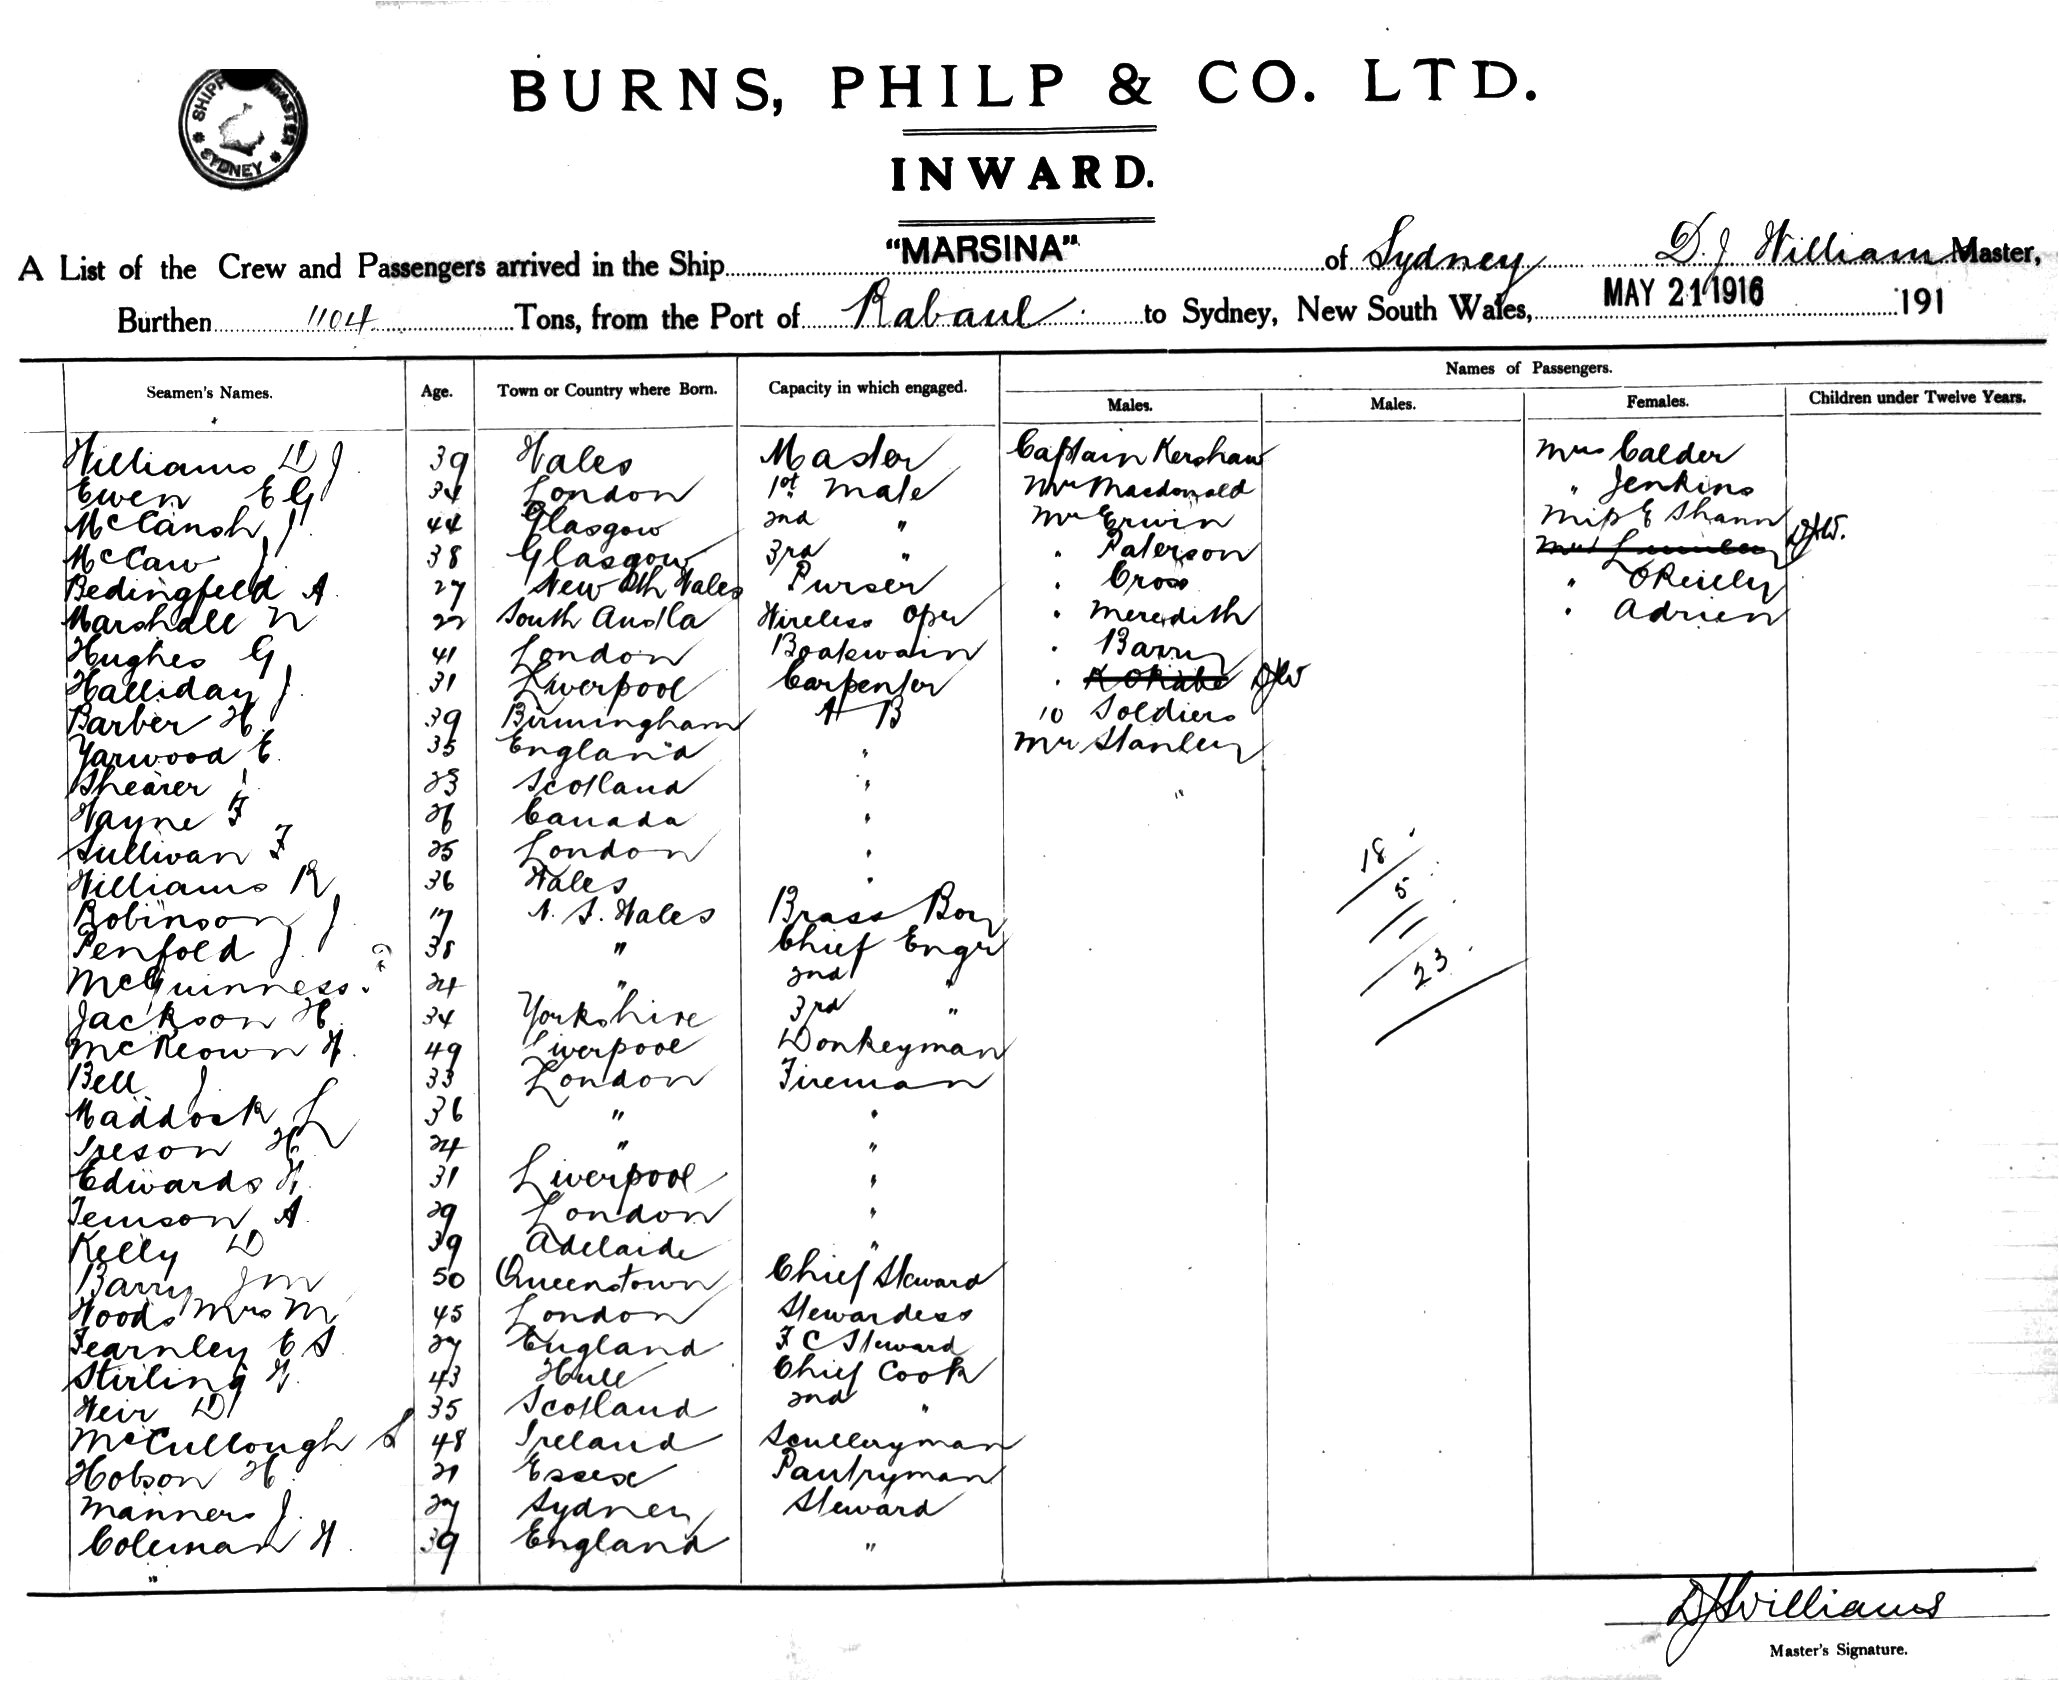 SHIPP MASTER
SYDNEY
BURNS, PHILP & CO. LTD.
INWARD.
A List of the Crew and Passengers arrived in the Ship "MARSINA" of Sydney D. J William Master,
Burthen 1104 Tons, from the Port of Rabaul to Sydney, New South Wales, MAY 21 1916 191
Names of Passengers.
Seamen's Names. Age. Town or Country where Born. Capacity in which engaged. Males. Males. Females. Children under Twelve Years.
Williams D J 39 Wales Master Captain Kershaw Mrs Calder
Ewen E G 34 London 1st Mate Mr Macdonald " Jenkins
McCansh J 44 Glasgow 2nd " Mr Erwin Miss E Shann
McCaw J 38 Glasgow 3rd " " Paterson Mrs DJW.
Bedingfeld A 27 New Sth Wales Purser " Cross " OReilly
Marshall N 22 South Austla Wireless Oper " Meredith " Adrien
Hughes G 41 London Boatswain " Barry
Halliday J. 31 Liverpool Carpenter " K OKabe DJW
Barber H. 39 Birmingham A B 10 Soldiers
Yarwood E. 35 England " Mr Stanley
Shearer J 23 Scotland " "
Wayne F 26 Canada "
Sullivan F 25 London " 18
Williams R 36 Wales " 5
Robinson J 17 N. S. Wales Brass Boy
Penfold J. 38 " Chief Engr
McGuinness. 24 " 2nd " 23
Jackson H. 34 Yorkshire 3rd "
McKeown W. 49 Liverpool Donkeyman
Bell J 33 London Fireman
Maddock L 36 " "
Ireson H. 24 " "
Edwards W. 31 Liverpool "
Jemson A. 29 London "
Kelly D 39 Adelaide "
Barry J M 50 Queenstown Chief Steward
Woods Mrs M 45 London Stewardess
Fearnley E S. 27 England F C Steward
Stirling W. 43 Hull Chief Cook
Weir D 35 Scotland 2nd "
McCullough S 48 Ireland Sculleryman
Hobson H. 21 Essex Pantryman
Manners J. 27 Sydney Steward
Coleman W. 39 England "
"
DJWilliams
Master's Signature.